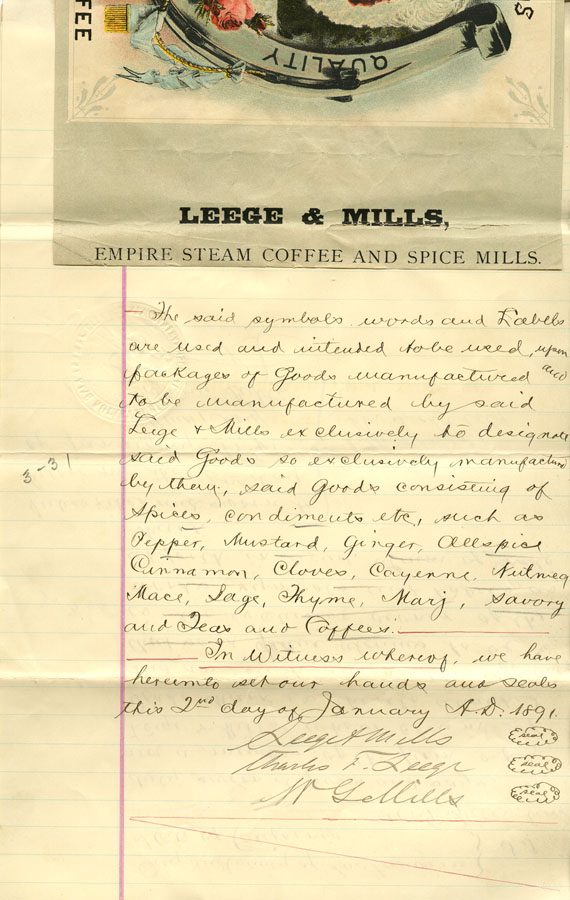 FFEE
QUALITY
S
LEEGE & MILLS,
EMPIRE STEAM COFFEE AND SPICE MILLS.
The said symbols, words and Labels
are used and intended to be used, upon
packages of Goods manufactured and
to be manufactured by said
Leege & Mills exclusively to designate
said Goods so exclusively manufactured
by them, said Goods consisting of
Spices, condiments etc, such as
Pepper, Mustard, Ginger, Allspice
Cinnamon, Cloves, Cayenne, Nutmeg
Mace, Sage, Thyme, Marj, Savory
and Teas and Coffees.
In Witness whereof, we have
hereunto set our hands and seals
this 2nd day of January A.D. 1891.
Leege & Mills seal
Charles F. Leege seal
W G Mills seal
3-31